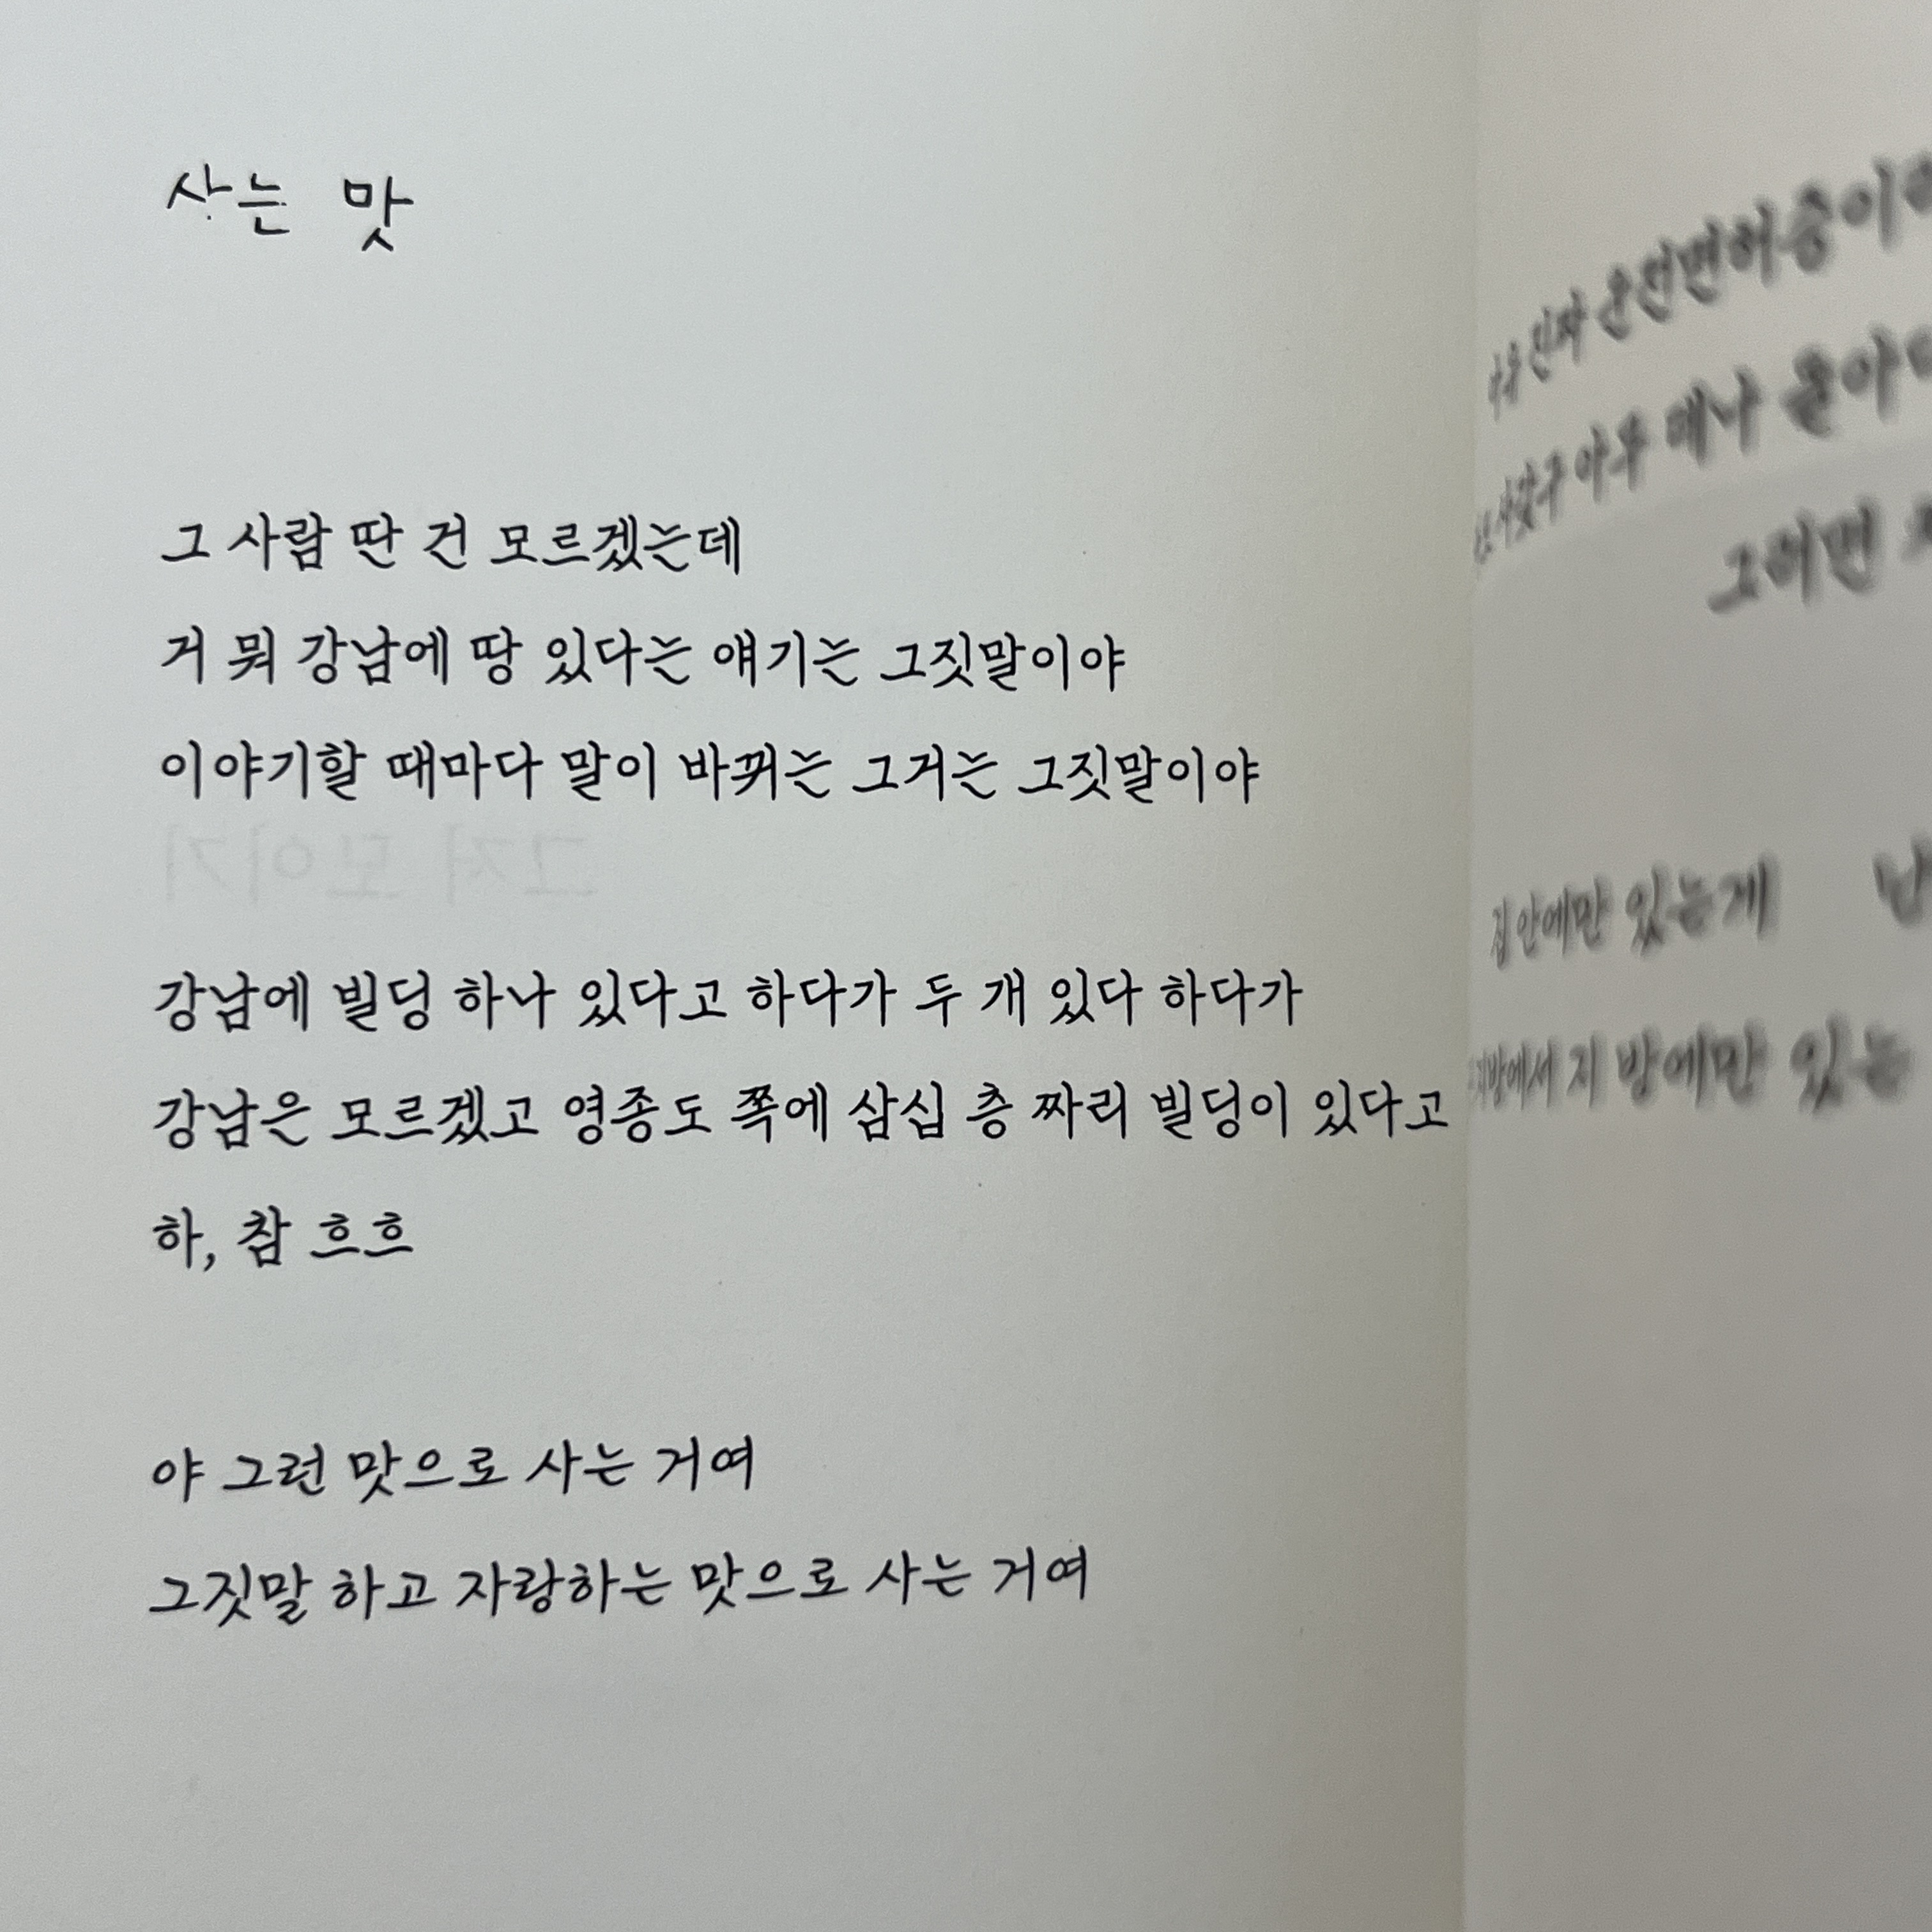 사는 맛
그 사람 딴 건 모르겠는데
거 뭐 강남에 땅 있다는 얘기는 그짓말이야
이야기할 때마다 말이 바뀌는 그거는 그짓말이야
강남에 빌딩 하나 있다고 하다가 두 개 있다 하다가
강남은 모르겠고 영종도 쪽에 삼십 층 짜리 빌딩이 있다고
하, 참 흐흐
야 그런 맛으로 사는 거여
그짓말 하고 자랑하는 맛으로 사는 거여
진짜 운전면허증이
아무 때나
그러면
집안에만 있는게
지 방에만 있는